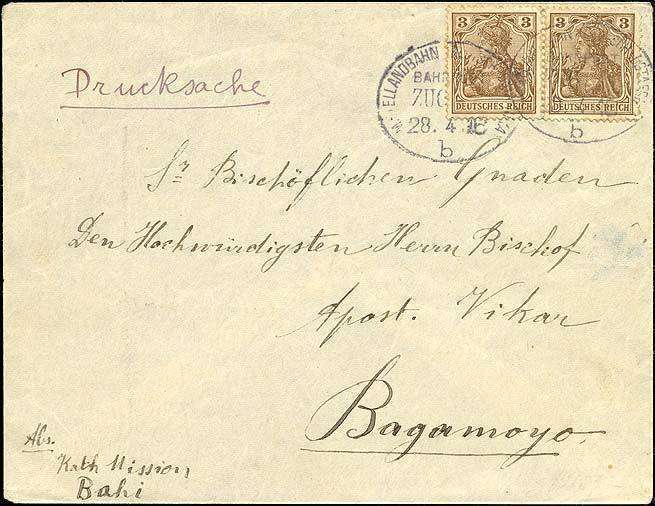 3 3 3 3
DEUTSCHES REICH DEUTSCHES REICH
ELLANDBAHN
BAH
ZUG
28. 4. 16
b
b
Drucksache
Sr. Bischöflichen Gnaden
Den Hochwürdigsten Herrn Bischof
Apost. Vikar
Bagamoyo.
Abs.
Kath Mission
Bahi